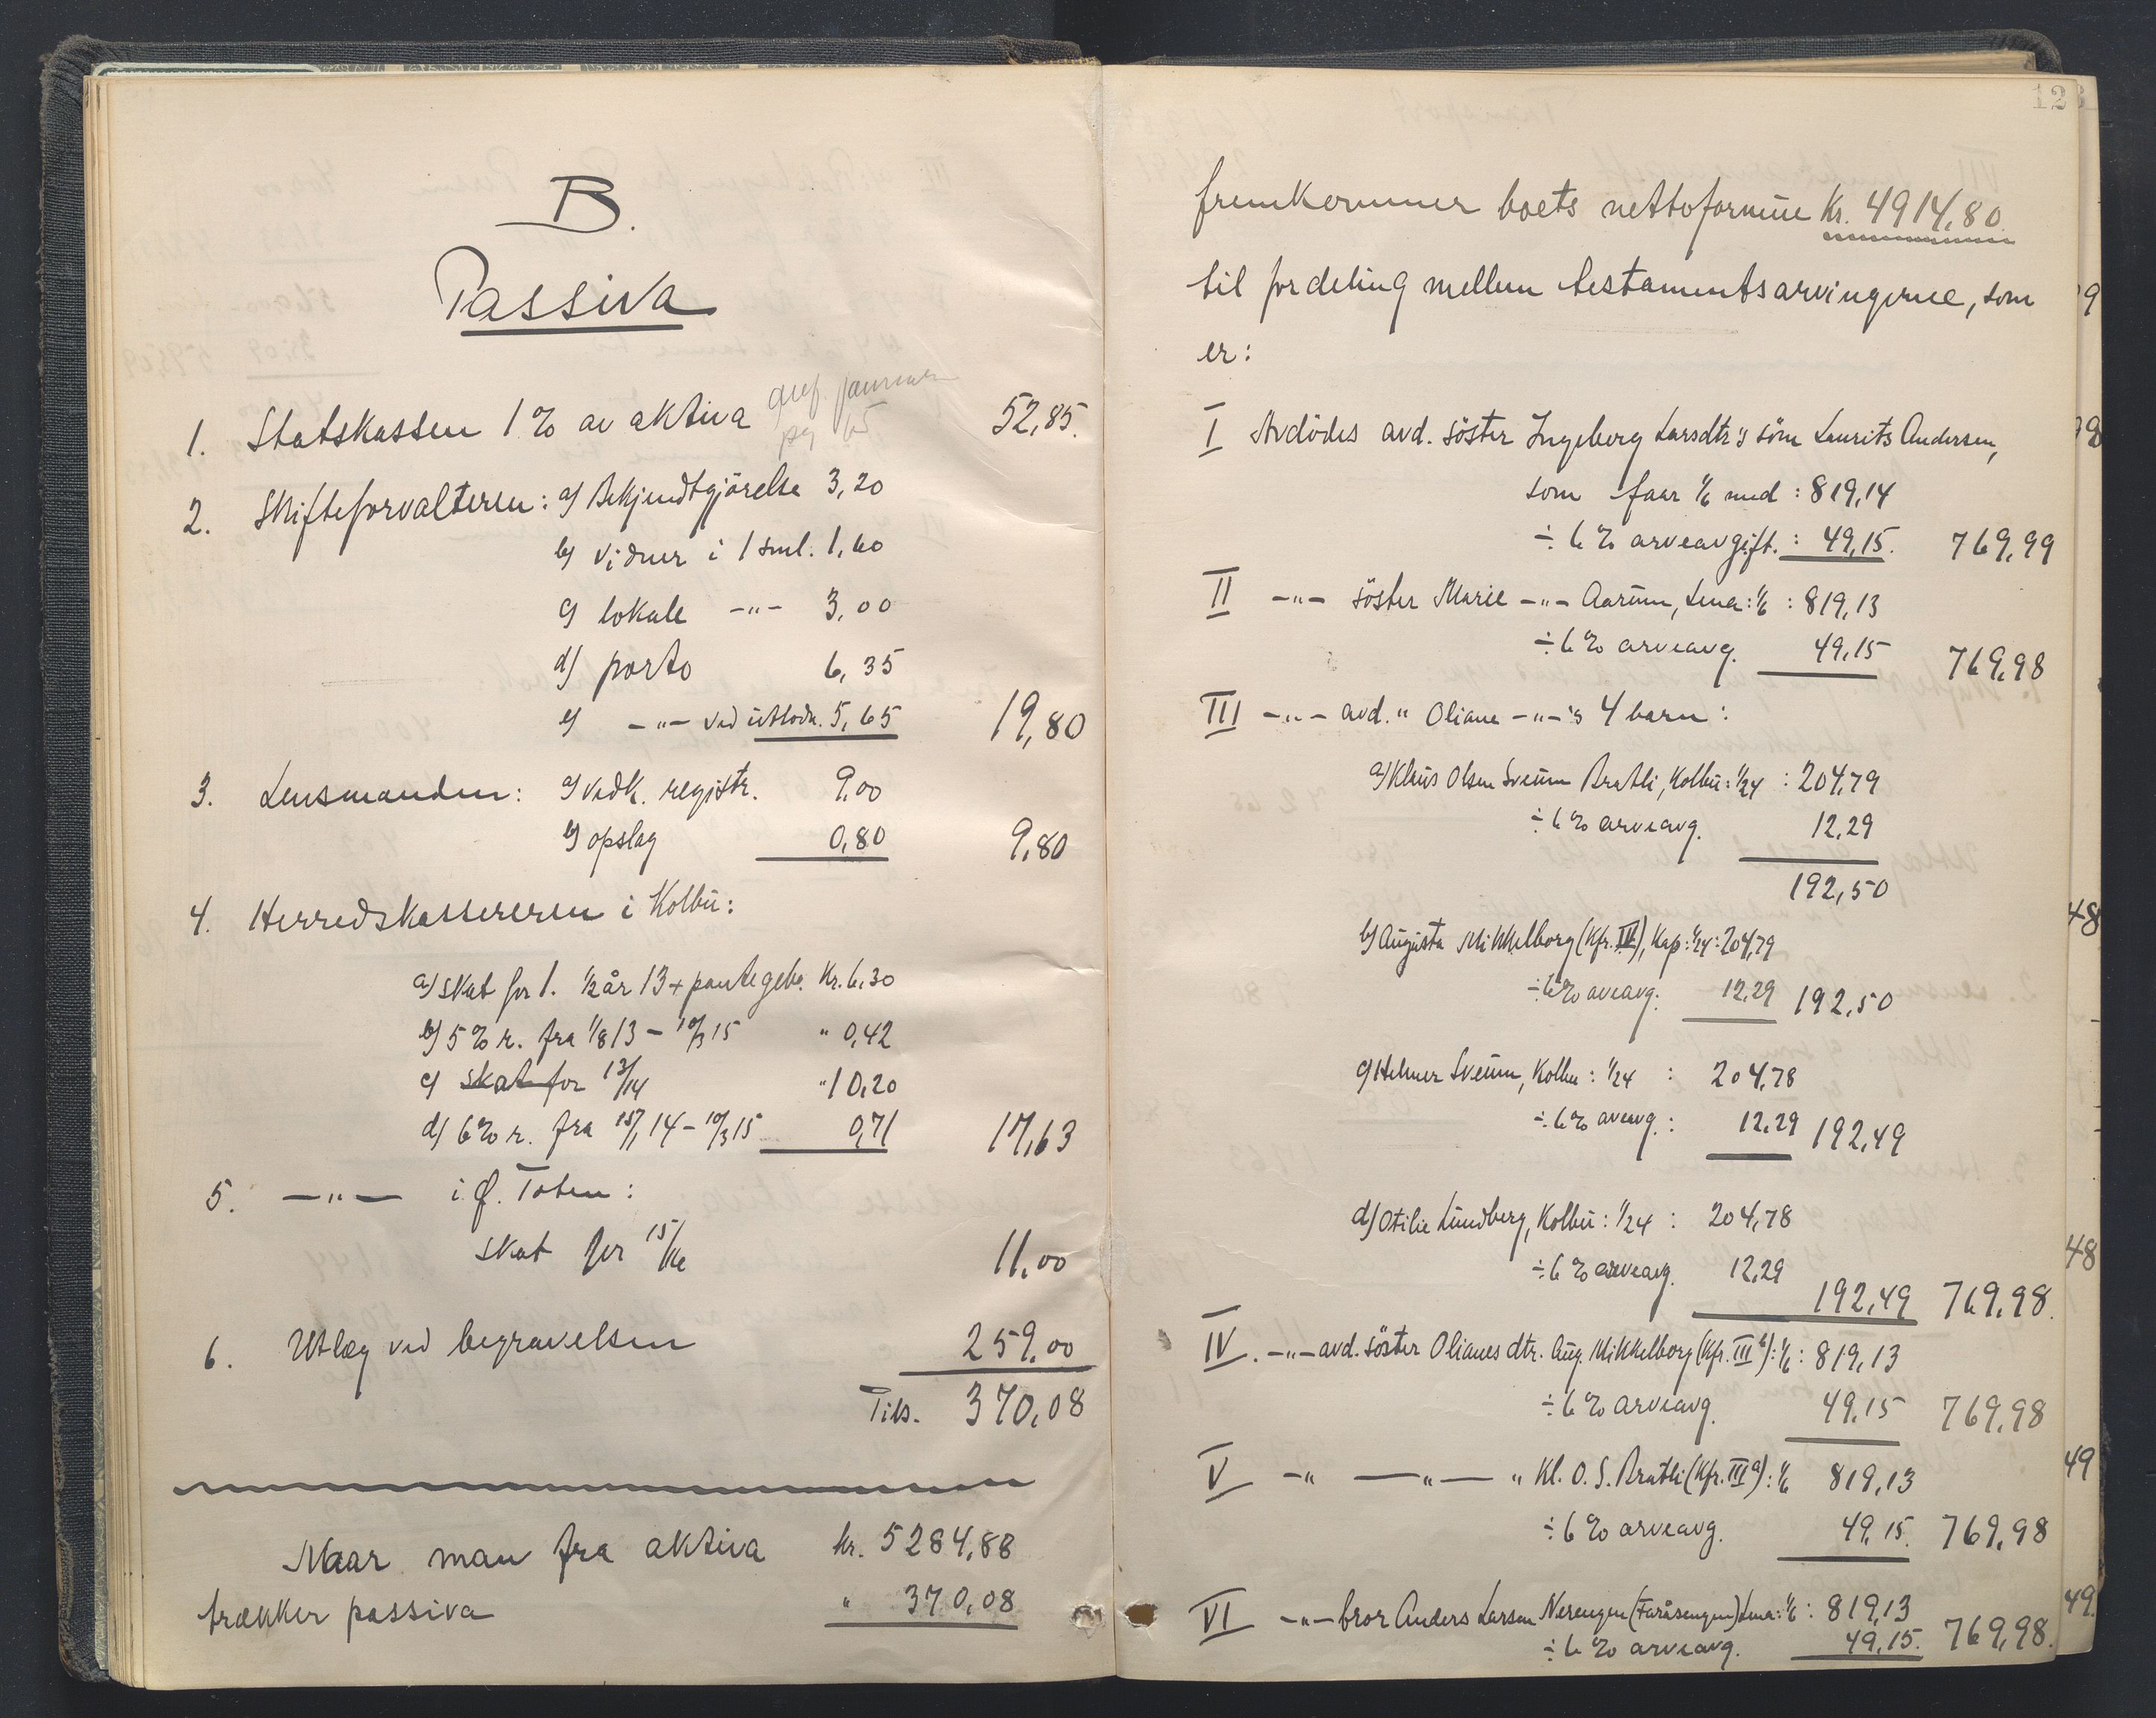 B.
Passiva
1. Statskassen 1 % av aktiva 52,85.
2. Skifteforvalteren: a) Bekjendtgjörelse 3,20
b) vidner i 1 sml. 1,60
c) lokale -"- 3,00
d) porto 6,35
e) -"- ved utlodn. 5,65 19,80
3. Lensmanden: a) vedk. registr. 9,00
b) opslag 0,80 9,80
4. Herredskassereren i Kolbu:
a) skat for 1. ½ år 13 + pantegeb. Kr. 6,30
b) 5 % r. fra 1/8 13 - 10/3 15 " 0,42
c) skat for 13/14 " 10,20
d) 6 % r. fra 15/1 14 - 10/3 15 0,71 17,63
5. -"- i Ø. Toten:
skat for 15/16 11,00
6. Utlæg ved begravelsen 259,00
Tils. 370,08
Naar man fra aktiva kr. 5284,88
trækker passiva " 370,08
12
fremkommer boets nettoformue Kr. 4914,80.
til fordeling mellem testamentsarvingerne, som
er:
I Avdödes avd. söster Ingeborg Larsdtr's sön Laurits Andersen,
som faar 1/6 med : 819,14
÷ 6 % arveavgift. : 49,15. 769,99
II -"- söster Marie -"- Aarum, Lena: 1/6 : 819,13
÷ 6 % arveavg. 49,15 769,98
III -"- avd. " Oliane -"-'s 4 barn:
a) Klaus Olsen Sveum Bratli, Kolbu: 1/24 : 204,79
÷ 6 % arveavg. 12,29
192,50
b) Augusta Mikkelborg (Kfr. IV), Kap: 1/24: 204,79
÷ 6 % aveavg. 12,29 192,50
c) Helmer Sveum, Kolbu: 1/24 : 204,78
÷ 6 % aveavg.: 12,29 192,49
d) Otilie Lundberg, Kolbu: 1/24 : 204,78
÷ 6 % arveavg. 12,29
192,49 769,98.
IV. -"- avd. söster Olianes dtr. Aug. Mikkelborg (Kfr. III b): 1/6: 819,13
÷ 6 % arveavg. 49,15 769,98
V -" -"- " Kl. O. S. Bratli (Kfr. III a): 1/6 819,13
÷ 6 % arveavg. 49,15. 769,98
VI -"- bror Anders Larsen Nerengen (Faråsengen) Lena: 1/6: 819,13
÷ 6 % arveavg. 49,15. 769,98.